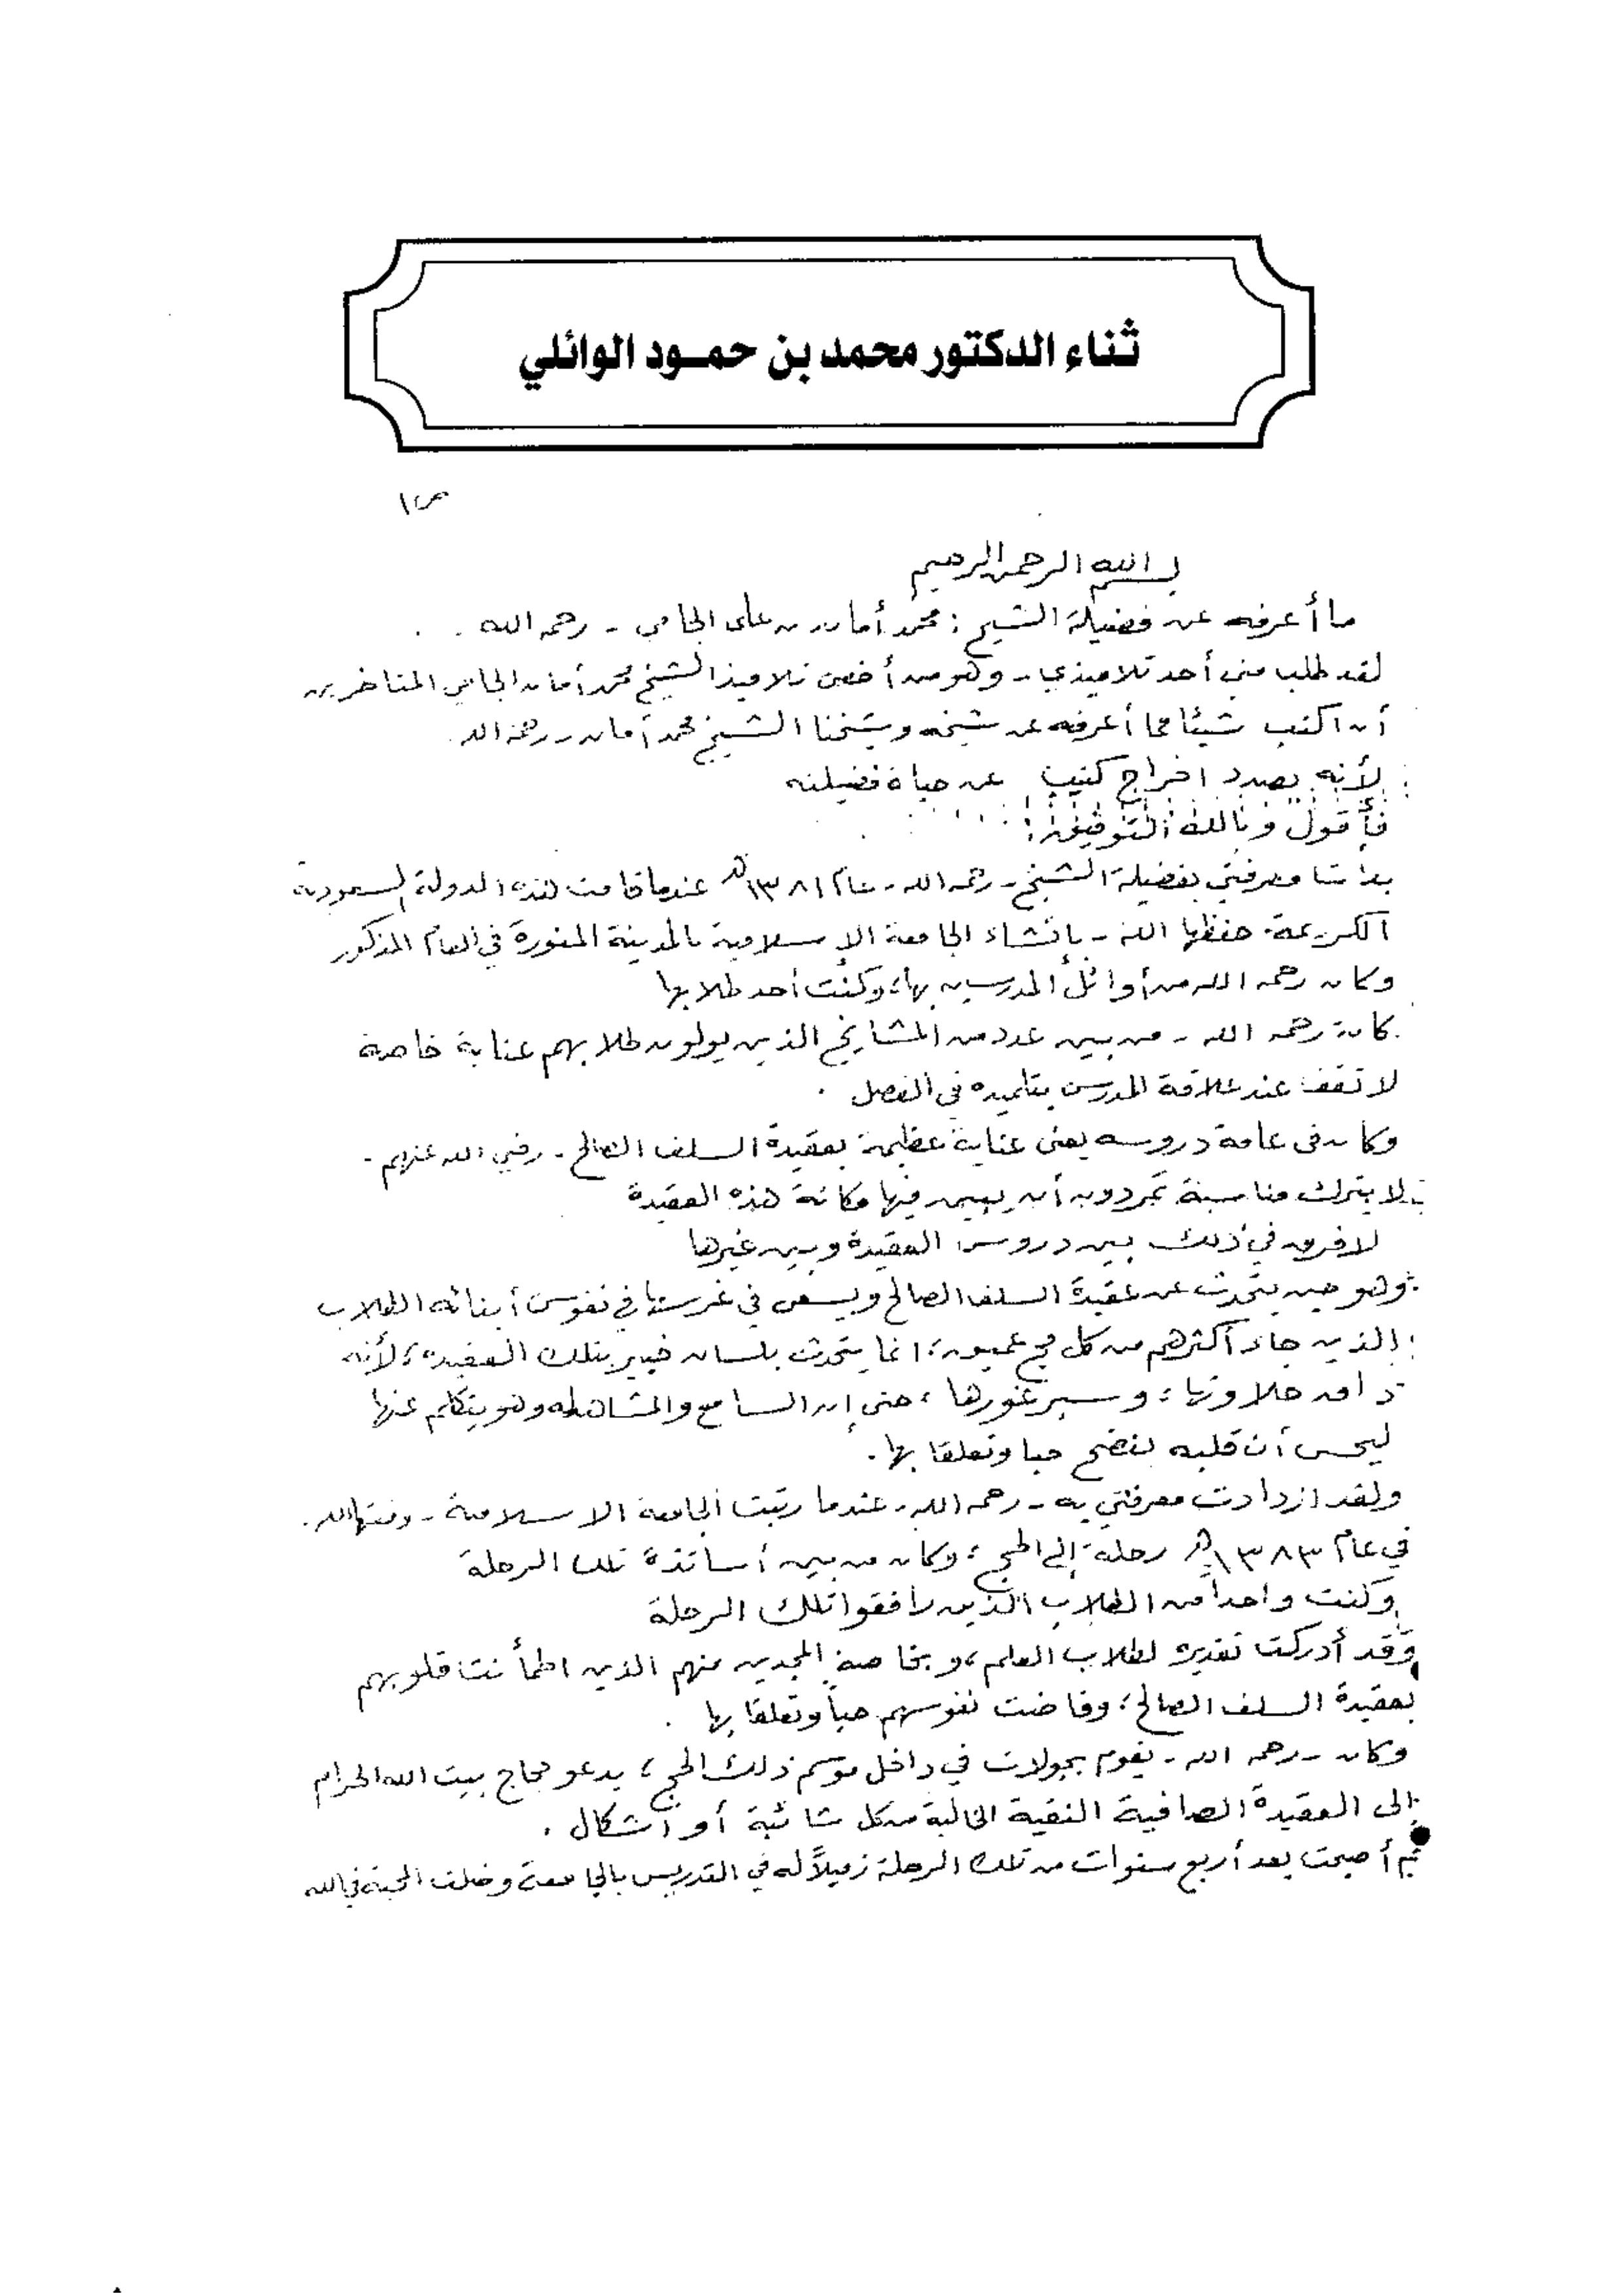 ثناء الدكتور محمد بن حمود الوائلي
ص١
بسم الله الرحمن الرحيم
ما أعرفه عن فضيلة الشيخ : محمد أمان بن على الجامي - رحمه الله - .
لقد طلب مني أحد تلاميذي - وهو من أخص تلاميذ الشيخ محمد أمان الجامي المتأخرين
أن اكتب شيئا مما أعرفه عن شيخه وشيخنا الشيخ محمد أمان - رحمه الله .
لأنه بصدد اخراج كتيب عن حياة فضيلته
فأقول وبالله التوفيق :
بدأت معرفتي بفضيلة الشيخ - رحمه الله - عام ١٣٨١هـ عندما قامت هذه الدولة السعودية
الكريمة - حفظها الله - بإنشاء الجامعة الإسلامية بالمدينة المنورة في العام المذكور
وكان رحمه الله من أوائل المدرسين بها، وكنت أحد طلابها
كان رحمه الله - من بين عدد من المشايخ الذين يولون طلابهم عناية خاصة
لا تقف عند علاقة المدرس بتلميذه في الفصل .
وكان في عامة دروسه يعنى عناية عظيمة بعقيدة السلف الصالح - رضي الله عنهم -
لا يترك مناسبة تمر دون أن يبين فيها مكانة هذه العقيدة
لا فرق في ذلك بين دروس العقيدة وبين غيرها
وهو حين يتحدث عن عقيدة السلف الصالح ويسعى في غرسها في نفوس أبنائه الطلاب
الذين جاء أكثرهم من كل فج عميق ، انما يتحدث بلسان خبير بتلك العقيدة ، لأنه
ذاق حلاوتها ، وسبر غورها ، حتى إن السامع والمشاهد له وهو يتكلم عنها
ليحس أن قلبه ينضح حبا وتعلقا بها .
ولقد ازدادت معرفتي به - رحمه الله - عندما رتبت الجامعة الاسلامية - وفقها الله .
في عام ١٣٨٣هـ رحلة إلى الحج ، وكان من بين أساتذة تلك الرحلة
وكنت واحداً من الطلاب الذين رافقوا تلك الرحلة
وقد أدركت تقديره لطلاب العلم ، وبخاصة المجدين منهم الذين اطمأنت قلوبهم
بعقيدة السلف الصالح ، وفاضت نفوسهم حباً وتعلقا بها .
وكان - رحمه الله - يقوم بجولات في داخل موسم ذلك الحج ، يدعو حجاج بيت الله الحرام
إلى العقيدة الصافية النقية الخالية من كل شائبة أو اشكال .
ثم أصبحت بعد أربع سنوات من تلك الرحلة زميلاً له في التدريس بالجامعة وظلت المحبة في الله